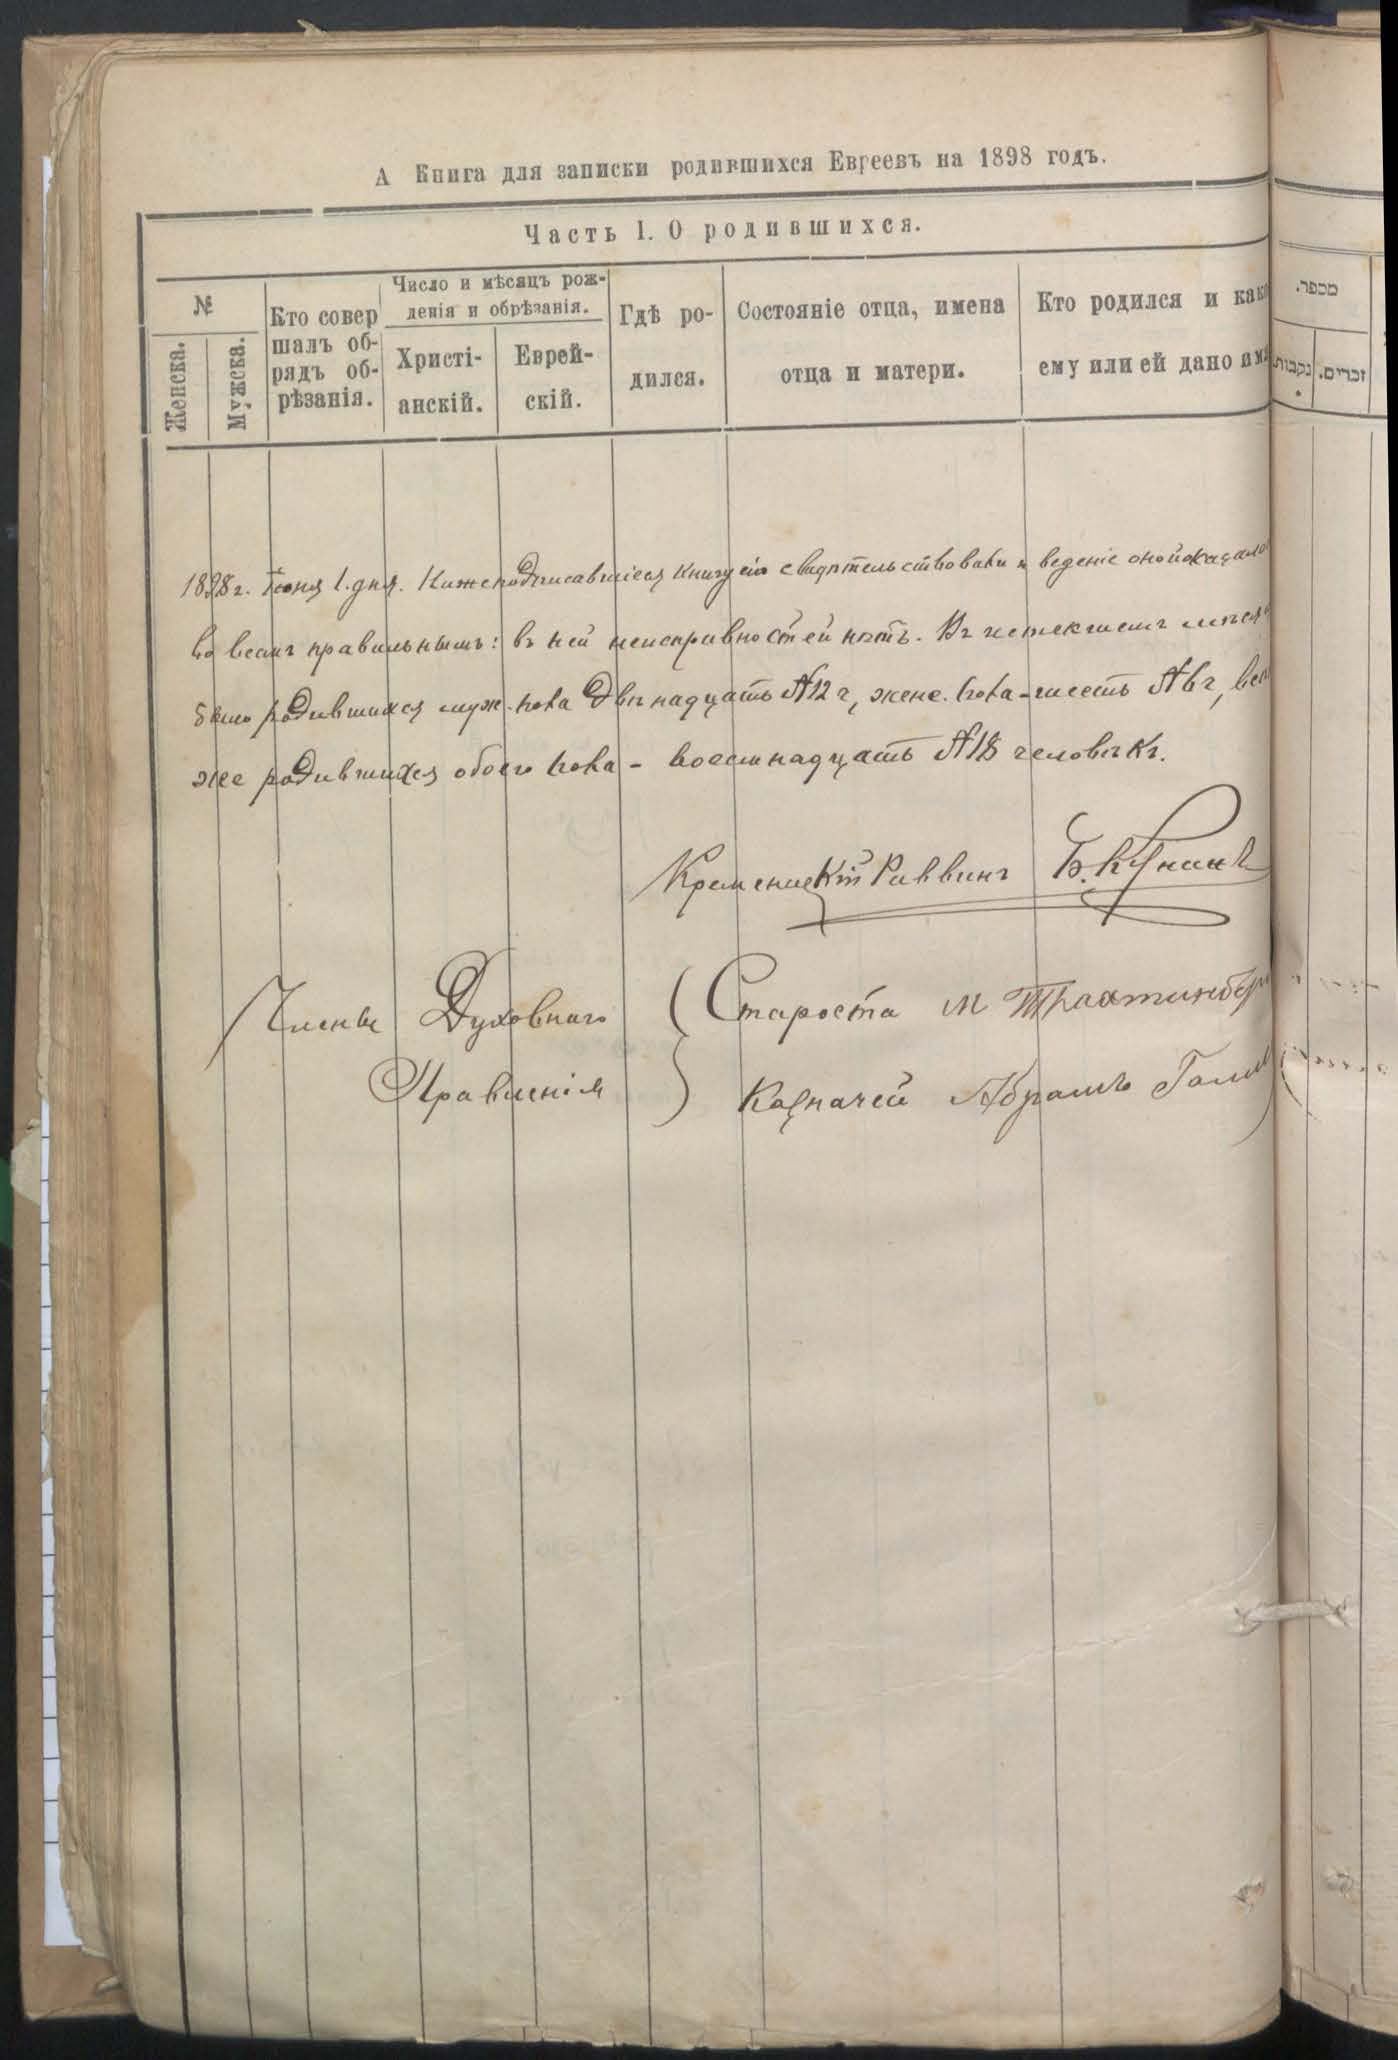 А Книга для записки родившихся Евреевъ на 1898 годъ.
Часть I. О родившихся.
№
Женска.
Мужска.
Кто совер
шалъ об-
рядъ об-
рѣзанія.
Число и мѣсяцъ рож-
денія и обрѣзанія.
Христі-
анскій.
Еврей-
скій.
Гдѣ ро-
дился.
Состояніе отца, имена
отца и матери.
Кто родился и како
ему или ей дано им
מספר.
נקבות
זכרים.
1898 г. Іюня 1. дня. Нижеподписавшіеся книгу сію свидѣтельствовали и веденіе оной оказало
во всемъ правильнымъ: въ ней неисправностей нѣтъ. Въ истекшемъ мѣсяц
было родившихся муж. пола двѣнадцать №12 ч, женс. пола - шесть №6 ч, все
же родившихся обоего пола - восемнадцать №18 человѣкъ.
Кременецкій Раввинъ
Члены Духовнаго
Правленія
Староста М Трахтинбер
Казначей Абрамъ